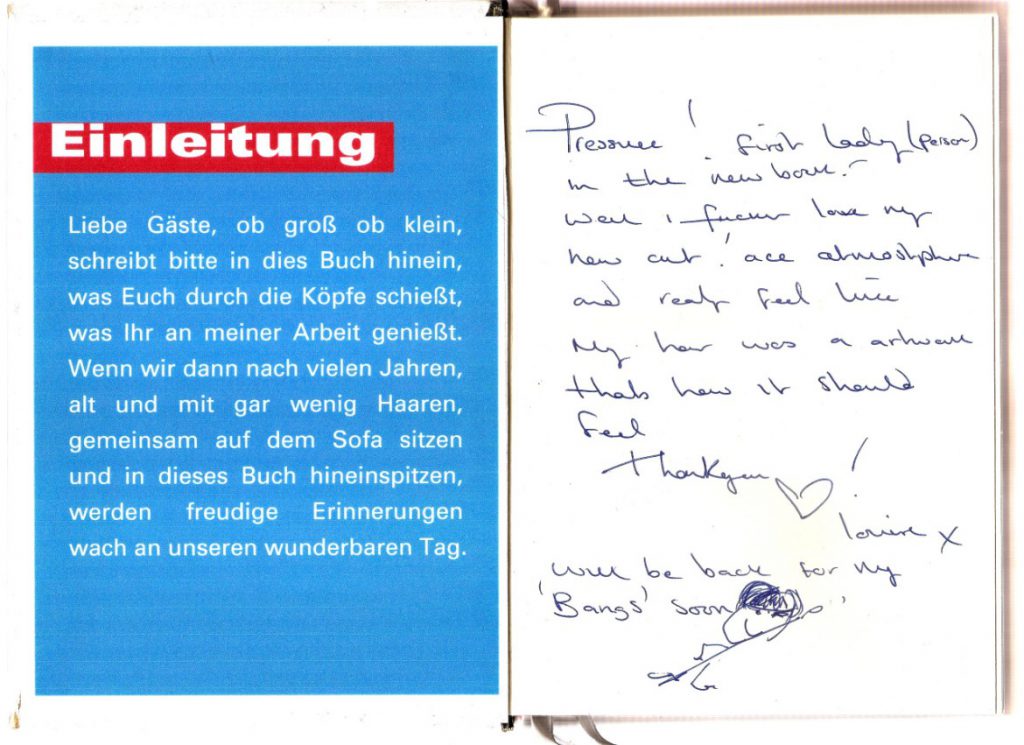 Einleitung
Liebe Gäste, ob groß ob klein,
schreibt bitte in dies Buch hinein,
was Euch durch die Köpfe schießt,
was Ihr an meiner Arbeit genießt.
Wenn wir dann nach vielen Jahren,
alt und mit gar wenig Haaren,
gemeinsam auf dem Sofa sitzen
und in dieses Buch hineinspitzen,
werden freudige Erinnerungen
wach an unseren wunderbaren Tag.
Pressure! first lady (person)
in the new book.
Well I love my
new cut! ace
and really feel like
My hair was a artwork
thats how it should
feel
Thankyou !
Louise x
Will be back for my
'Bangs' soon